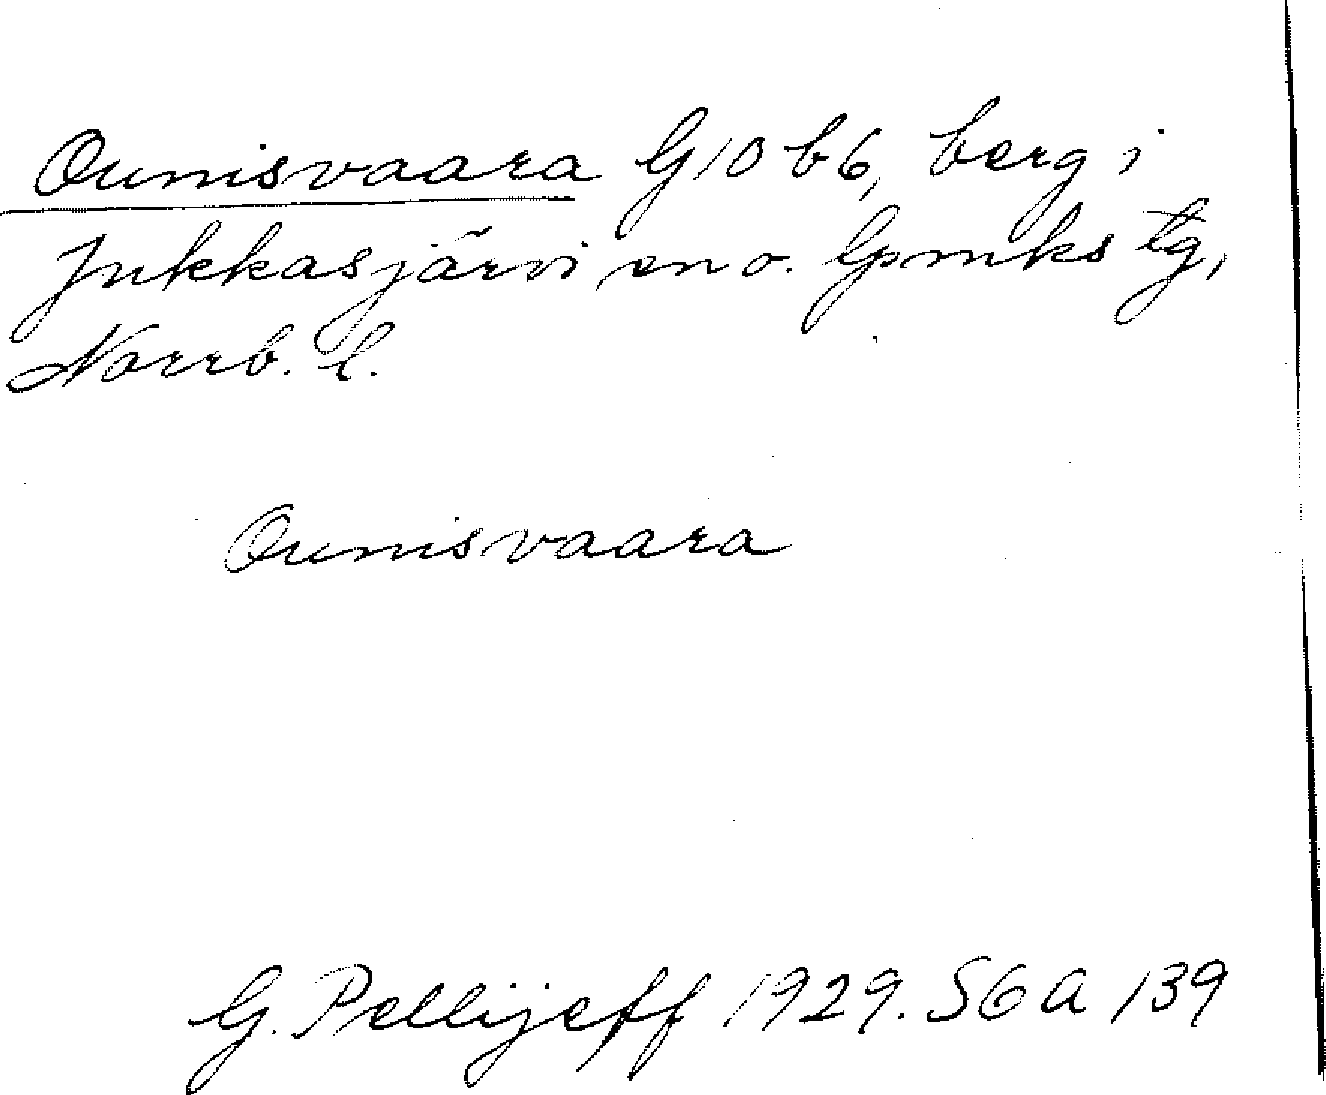 Ounisvaara G10 b6, berg i
Jukkasjärvi en o. Gpmks tg,
Norrb. l.
Ounisvaara
G. Pellijeff 1929. SGA 139